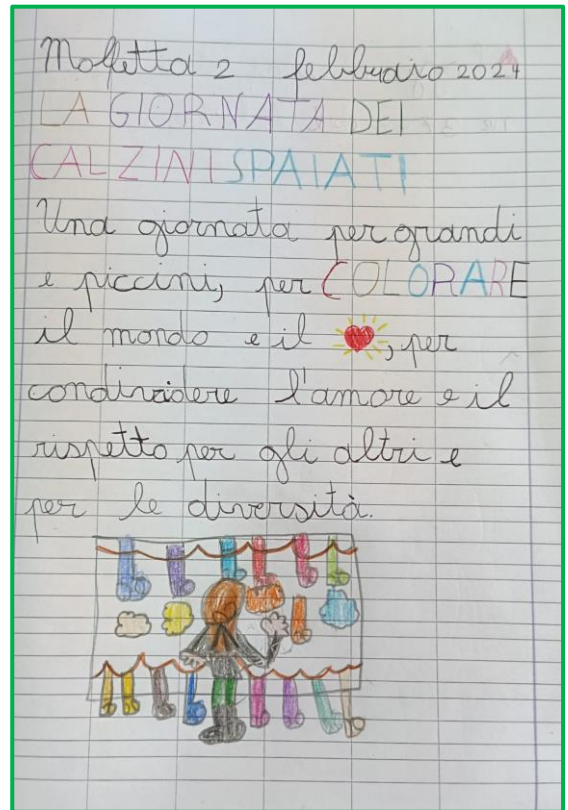 Molfetta 2 febbraio 2024
LA GIORNATA DEI
CALZINI SPAIATI
Una giornata per grandi
e piccini, per COLORARE
il mondo e il ❤️, per
condividere l'amore e il
rispetto per gli altri e
per le diversità.